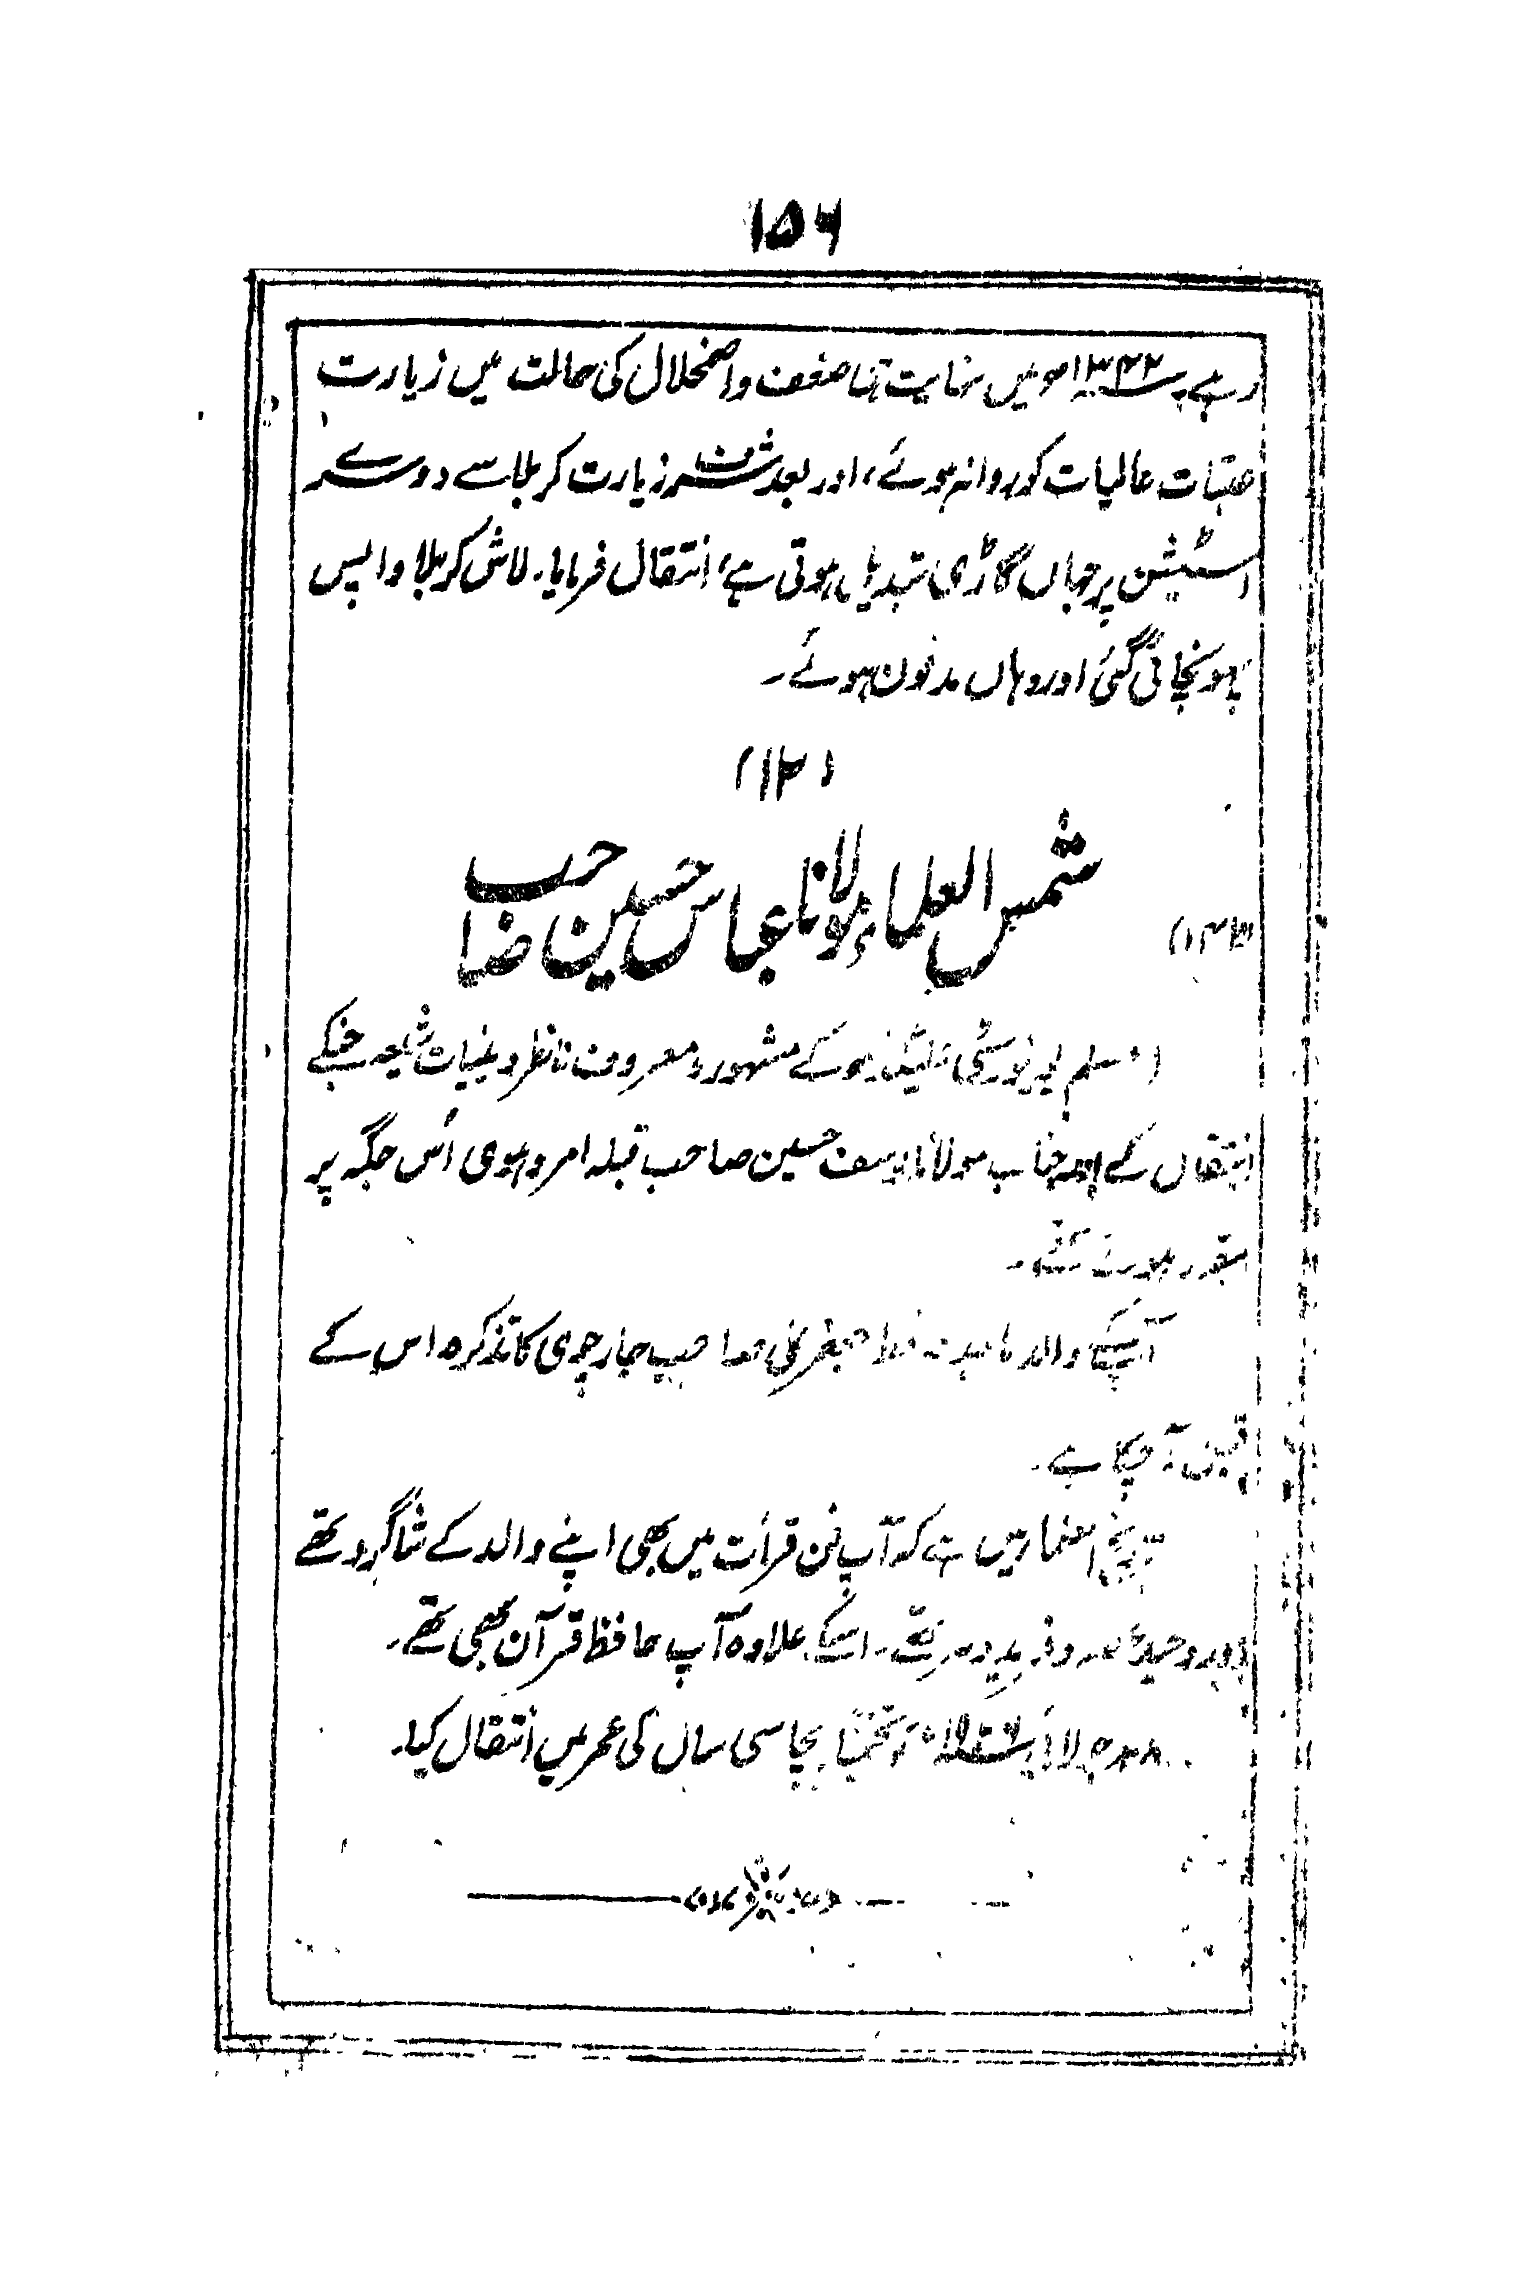 ۱۵۶
رہے۔ ۱۳۴۲ھ میں نہایت ضعف و اضمحلال کی حالت میں زیارت
عتبات عالیات کو روانہ ہوئے، اور بعد شرف زیارت کربلا سے دوسرے
اسٹیشن پر جہاں گاڑی تبدیل ہوتی ہے، انتقال فرمایا۔ لاش کربلا واپس
پہونچائی گئی اور وہاں مدفون ہوئے۔
(۱۲)
شمس العلماء مولانا عباس حسین صاحب
(مسلم یونیورسٹی علیگڑھ کے مشہور و معروف ناظر دینیات شیعہ جنکے
انتقال کے بعد جناب مولانا یوسف حسین صاحب قبلہ امروہوی اُس جگہ پر
مقرر ہوئے تھے۔
آپکے والد ماجد جعفر علی صاحب جارچوی کا تذکرہ اس کے
قبل آچکا ہے۔
میں ہے کہ آپ فن قرأت میں بھی اپنے والد کے شاگرد تھے
اور وحید عصر و فرید دہر تھے۔ اسکے علاوہ آپ حافظ قرآن بھی تھے۔
جولائی کو تخمیناً پچاسی سال کی عمر میں انتقال کیا۔